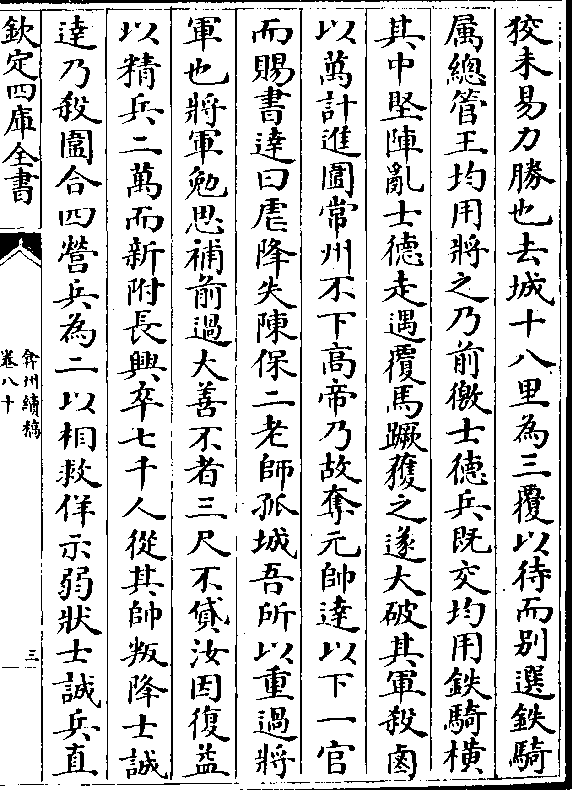 狡未易力勝也去城十八里為三覆以待而別選鉄騎
属總管王均用將之乃前徼士德兵既交均用鉄騎橫
其中堅陣亂士德走遇覆馬蹶獲之遂大破其軍殺鹵
以萬計進圍常州不下高帝乃故奪元帥達以下一官
而賜書達曰虐降失陳保二老師孤城吾所以重過將
軍也將軍勉思補前過大善不者三尺不貸汝因復益
以精兵二萬而新附長興卒七千人從其帥叛降士誠
達乃殺圍合四營兵為二以相救佯示弱狀士誠兵直
欽定四庫全書
弇州續稿
卷八十
三